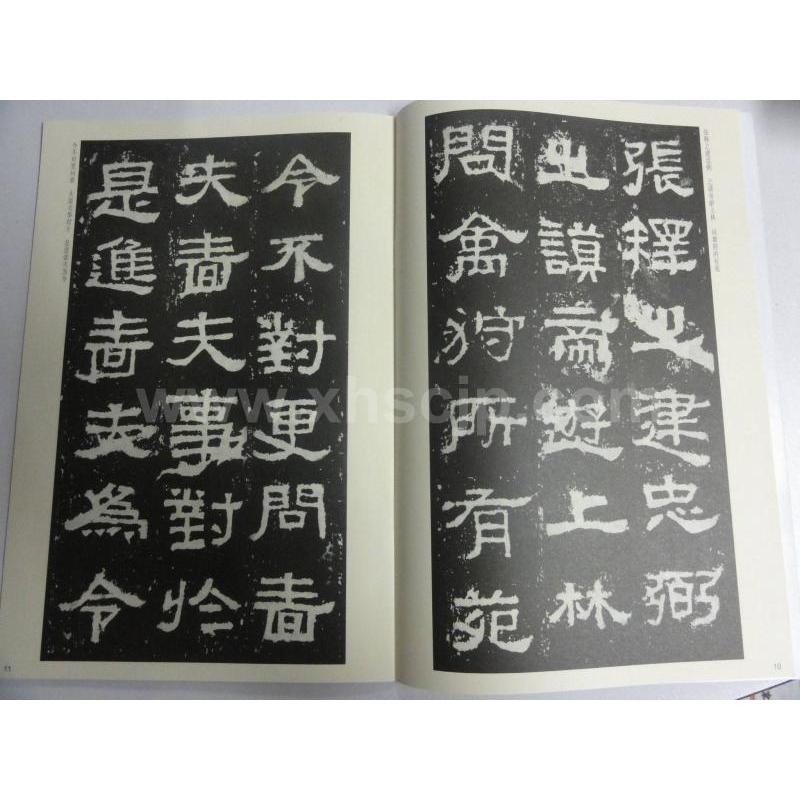 張釋之建忠弼
之謨帝遊上林
問禽狩所有苑
10
令不對更問嗇
夫嗇夫事對於
是進嗇夫為令
11